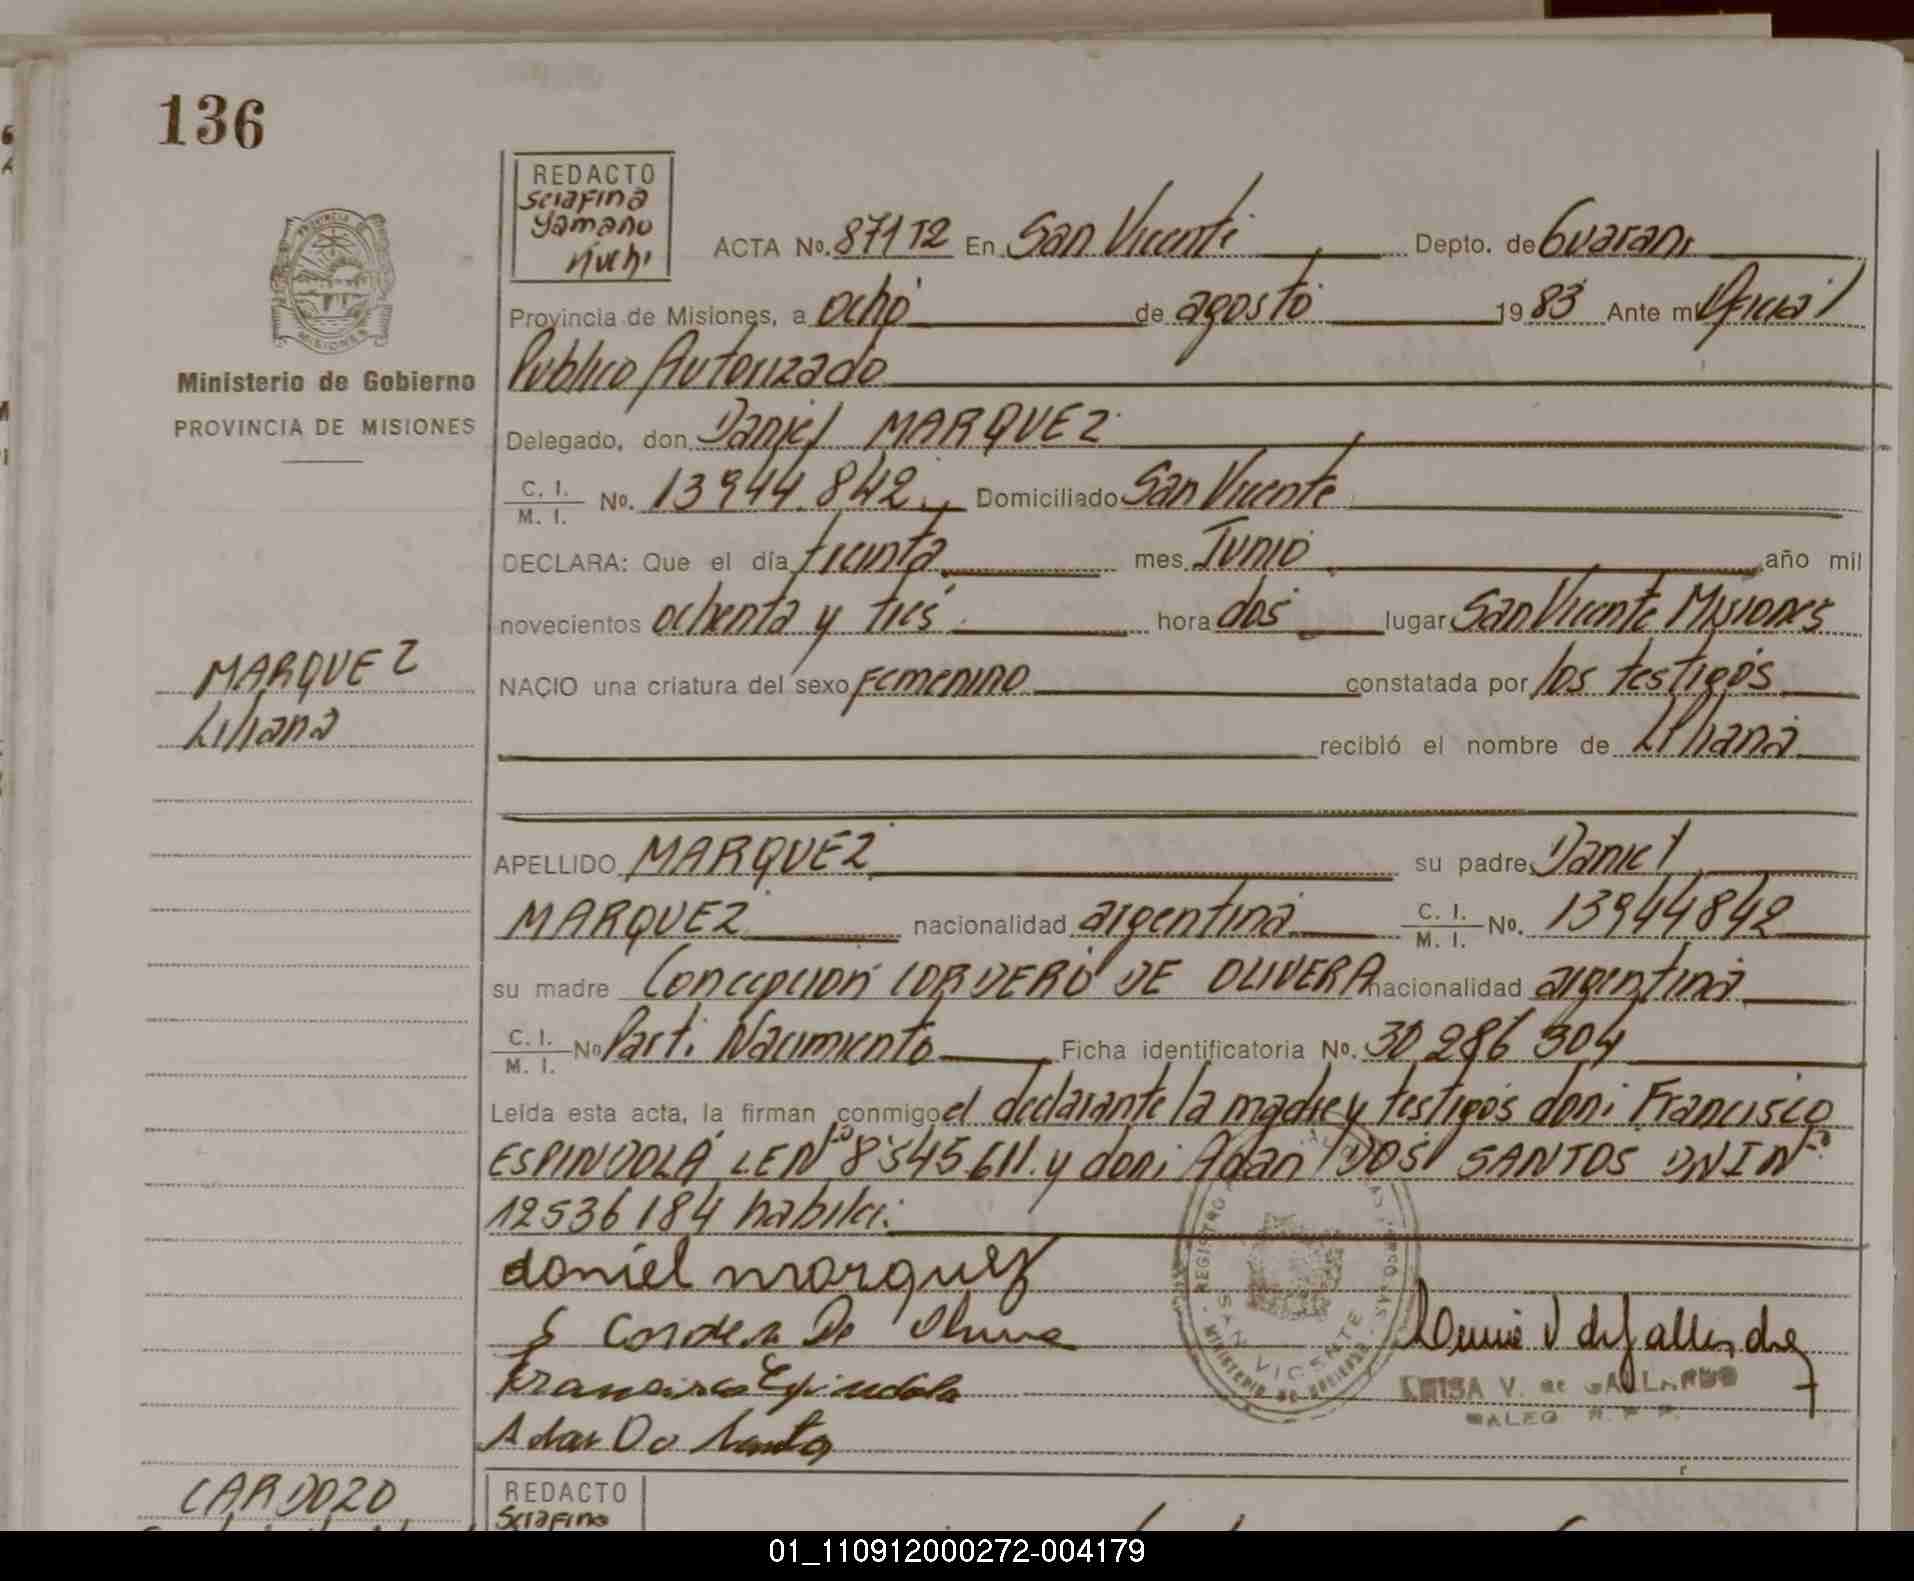 136
REDACTO
Serafina
Yamano
ACTA No. 871 T2 En San Vicente Depto. de Guarani
Provincia de Misiones, a ocho de agosto 1983 Ante mi Oficial
Publico Autorizado
Ministerio de Gobierno
PROVINCIA DE MISIONES
Delegado, don Daniel MARQUEZ
C. I. / M. I. No. 13944.842 Domiciliado San Vicente
DECLARA: Que el día treinta mes Junio año mil
novecientos ochenta y tres hora dos lugar San Vicente Misiones
MARQUEZ
Liliana
NACIO una criatura del sexo Femenino constatada por los testigos
recibió el nombre de Liliana
APELLIDO MARQUEZ su padre Daniel
MARQUEZ nacionalidad argentina C. I. / M. I. No. 13944842
su madre Concepcion CORDERO DE OLIVERA nacionalidad argentina
C. I. / M. I. No Parti Nacimiento Ficha identificatoria No. 30 286 304
Leída esta acta, la firman conmigo el declarante la madre y testigos don: Francisco
ESPINDOLA LE Nº 8545.611. y don: Adan DOS SANTOS DNI Nº
12536184 habiles:
daniel marquez
Francisco Espindola
REGISTRO
SAN VICENTE
LUISA V. de GALLARDO
CARDOZO
REDACTO
Serafina
01_110912000272-004179